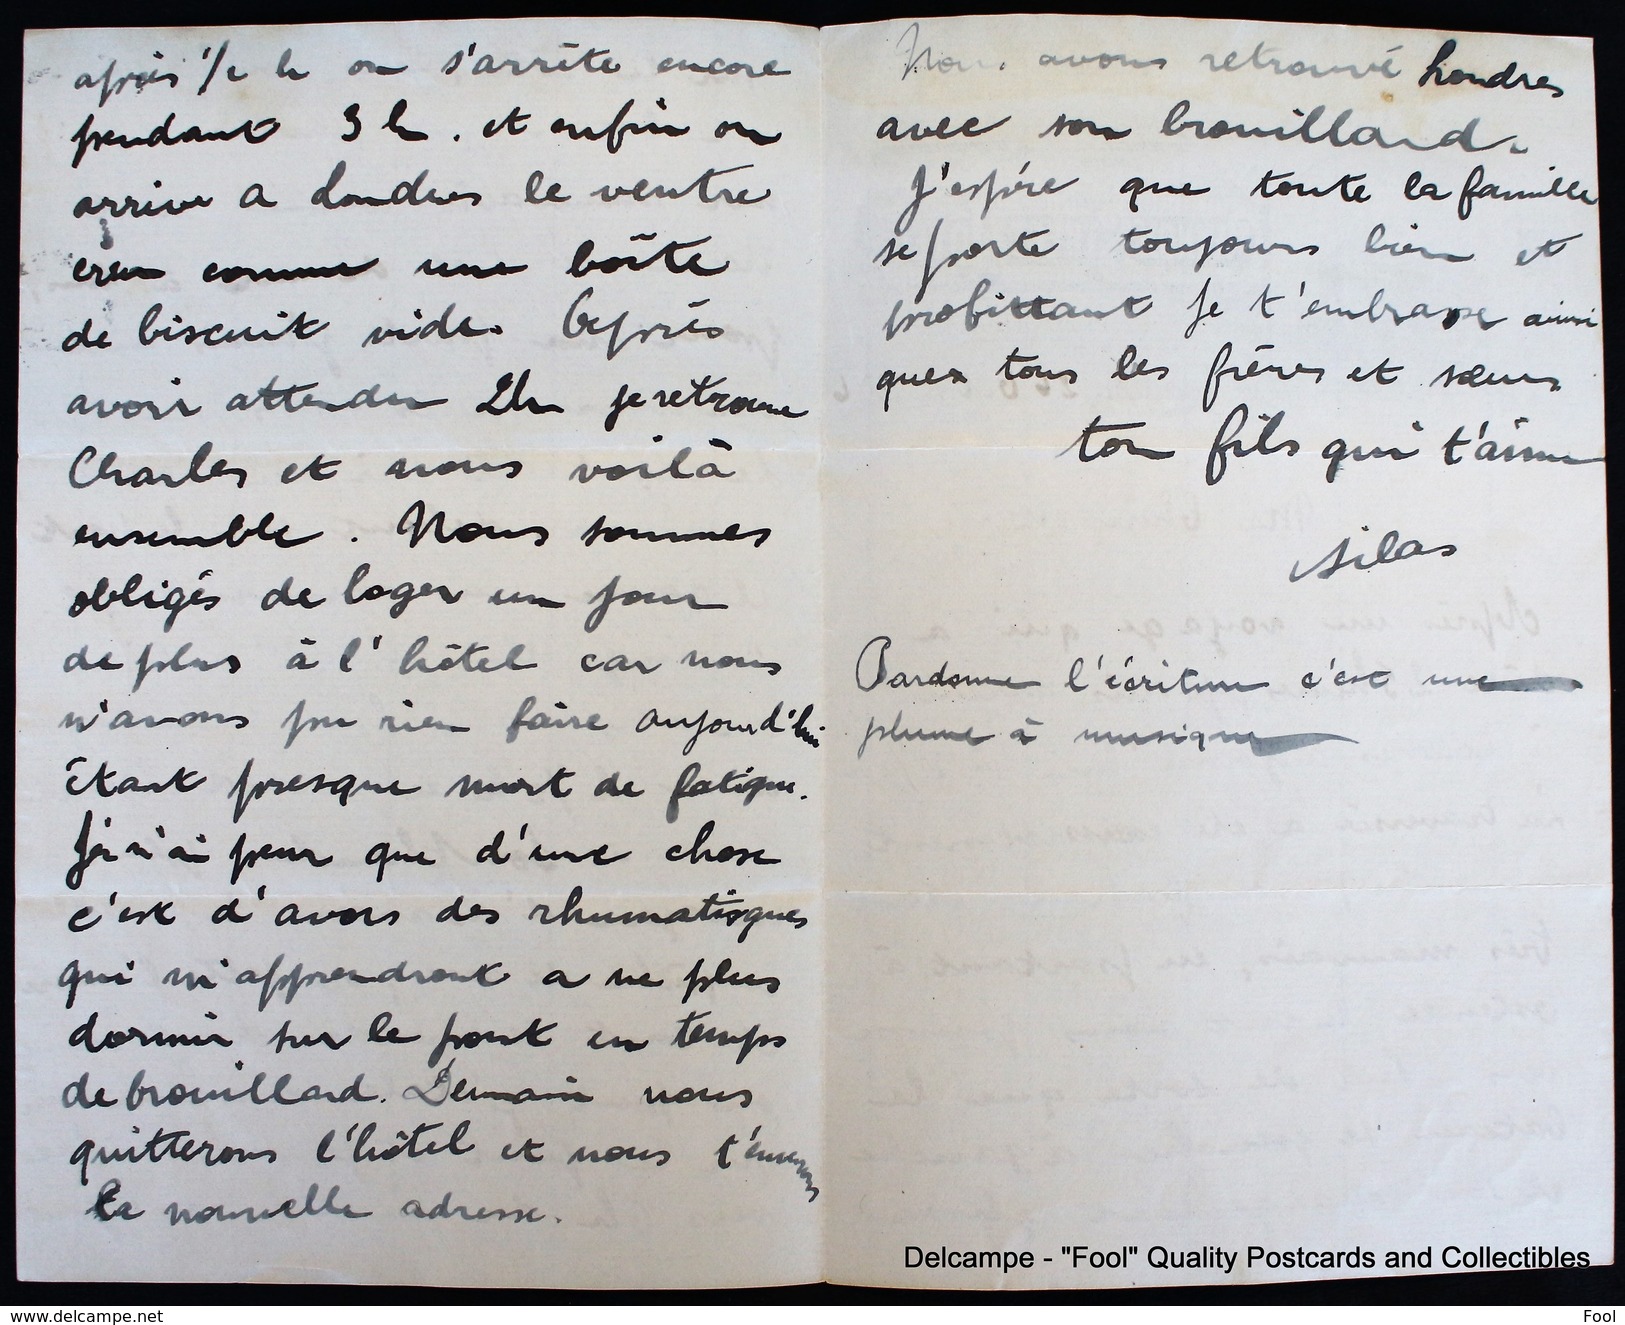 après 1/2 h on s'arrête encore
pendant 3 h. et enfin on
arrive a Londres le ventre
creu comme une boîte
de biscuit vide. Après
avoir attendu 2h je retrouve
Charles et nous voilà
ensemble. Nous sommes
obligés de loger un jour
de plus à l'hôtel car nous
n'avons pu rien faire aujourd'hui
étant presque mort de fatigue.
Je n'ai peur que d'une chose
c'est d'avoir des rhumatisques
qui m'apprendront a ne plus
dormir sur le pont en temps
de brouillard. Demain nous
quitterons l'hôtel et nous t'enverrons
la nouvelle adresse.
Nous avons retrouvé Londres
avec son brouillard.
J'espére que toute la famille
se porte toujours bien et
profittant je t'embrasse ainsi
que tous les fréres et sœurs
ton fils qui t'aime
Silas
Pardonne l'écriture c'est une
plume à musique
Delcampe - "Fool" Quality Postcards and Collectibles
www.delcampe.net
Fool